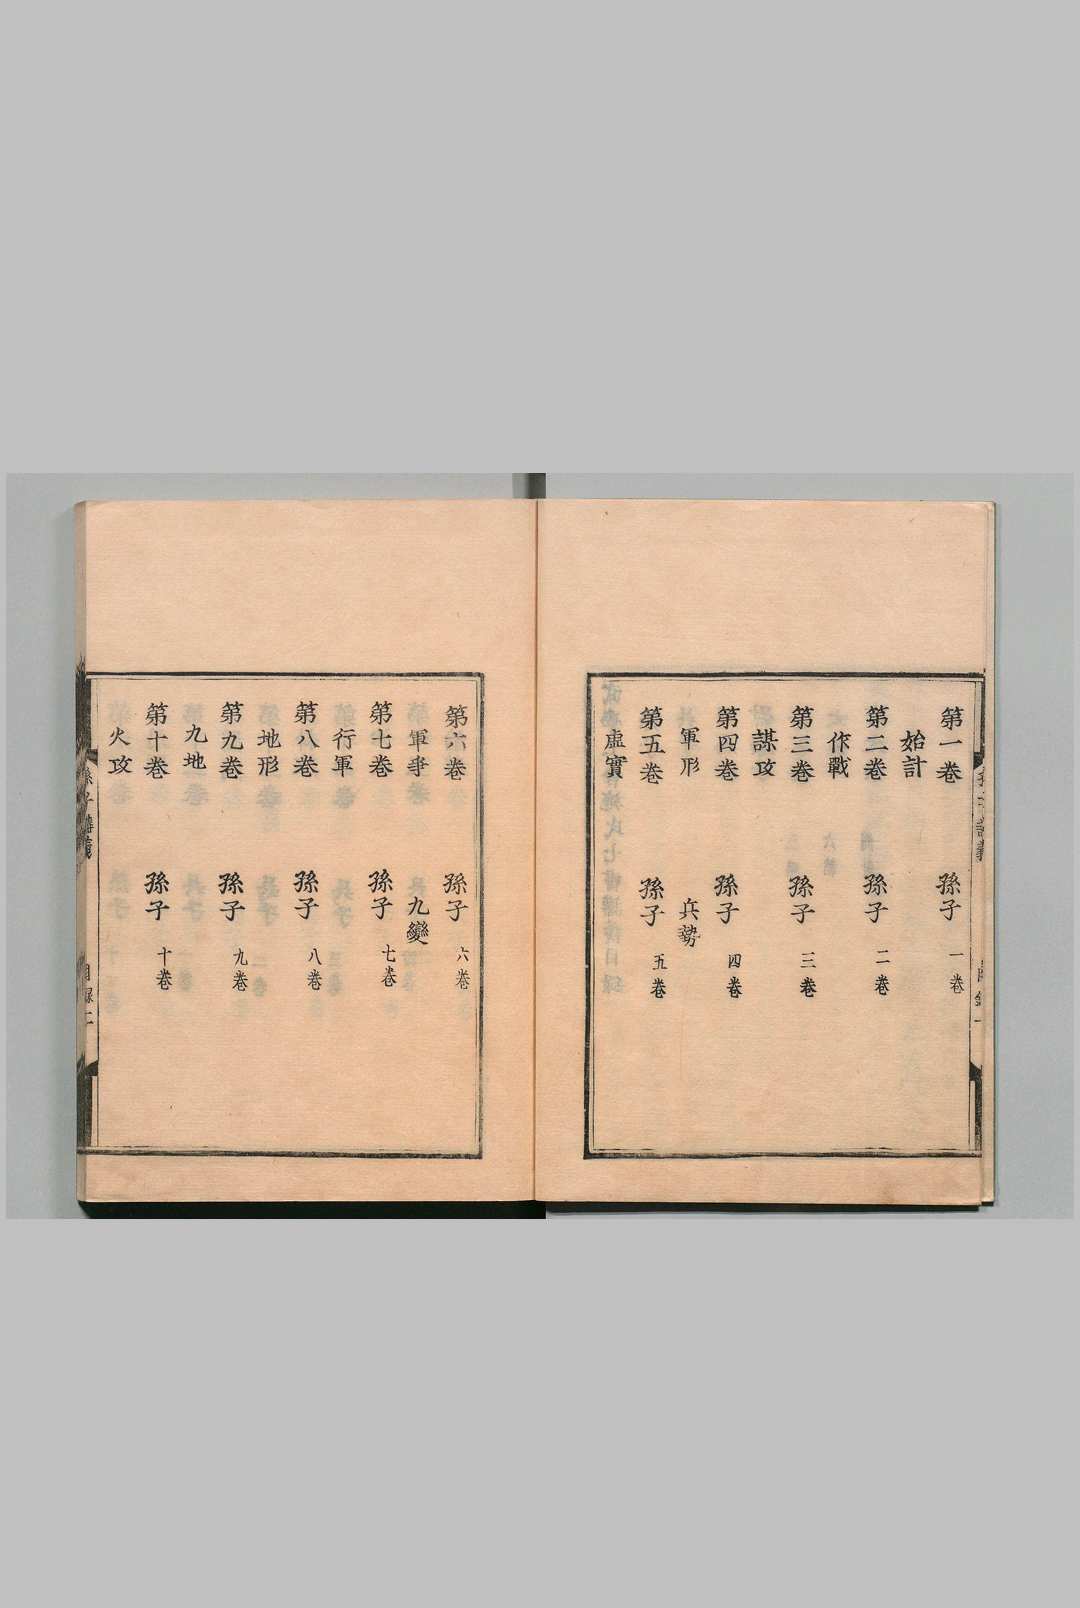 第一卷 孫子 一卷
始計
第二卷 孫子 二卷
作戰
第三卷 孫子 三卷
謀攻
第四卷 孫子 四卷
軍形 兵勢
第五卷 孫子 五卷
虛實
第六卷 孫子 六卷
軍爭 九變
第七卷 孫子 七卷
行軍
第八卷 孫子 八卷
地形
第九卷 孫子 九卷
九地
第十卷 孫子 十卷
火攻
孫子講義
目錄二